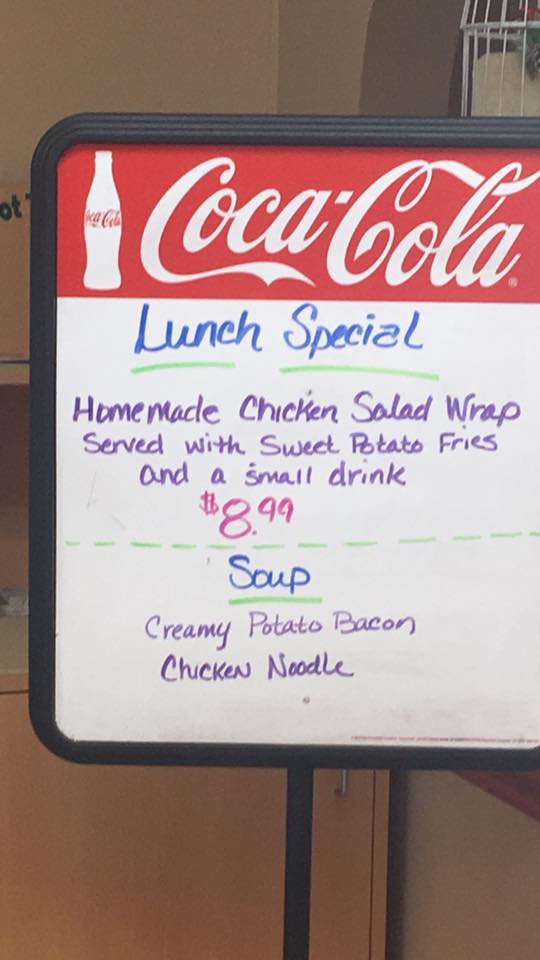 ot
Coca-Cola
Coca-Cola
Lunch Special
Homemade Chicken Salad Wrap
Served with Sweet Potato Fries
and a small drink
$8.99
Soup
Creamy Potato Bacon
Chicken Noodle